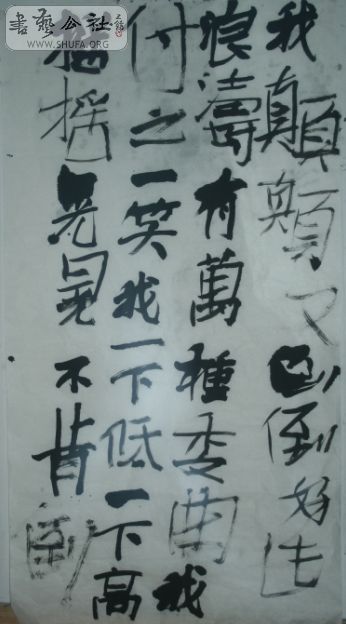 書藝公社
WWW.SHUFA.ORG
我顛顛又倒倒好比
浪濤有萬種委曲我
付之一笑我一下低一下高
搖搖晃晃不肯倒